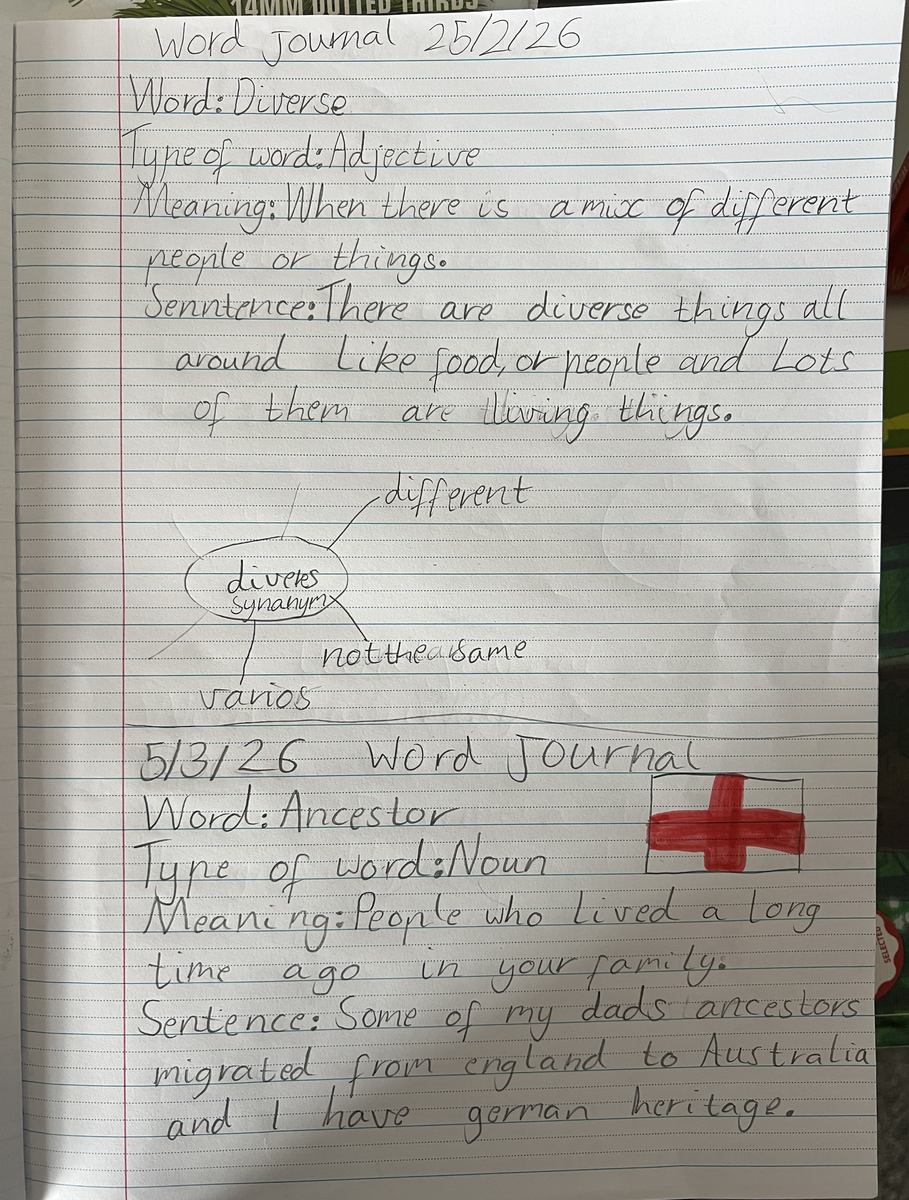 14MM DOTTED THIRDS
Word Journal 25/2/26
Word: Diverse
Type of word: Adjective
Meaning: When there is a mix of different
people or things.
Senntence: There are diverse things all
around like food, or people and Lots
of them are living things.
different
diveres
synanym
not the same
varios
5/3/26 Word Journal
Word: Ancestor
Type of word: Noun
Meaning: People who lived a long
time ago in your family.
Sentence: Some of my dads ancestors
migrated from england to Australia
and I have german heritage.
SELECTED